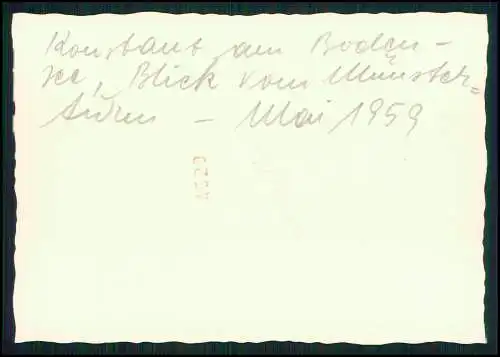 Konstanz am Boden-
see, Blick vom Münster=
turm - Mai 1959
4529